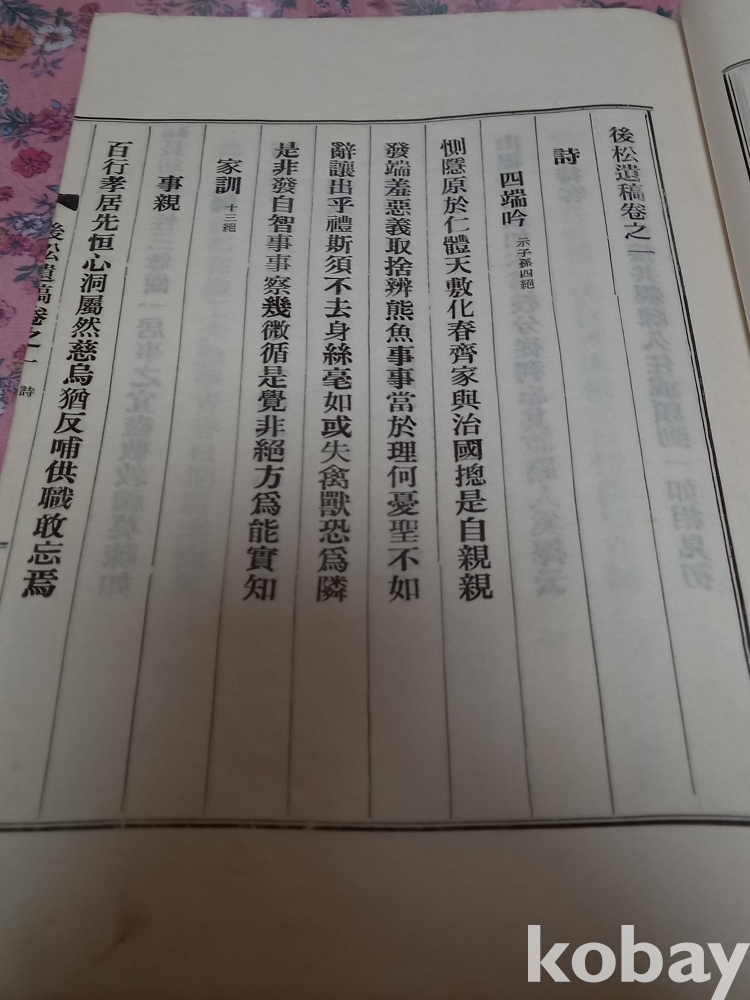 後松遺稿卷之一
詩
四端吟 示子孫四絕
惻隱原於仁體天敷化春齊家與治國摠是自親親
發端羞惡義取捨辨熊魚事事當於理何憂聖不如
辭讓出乎禮斯須不去身絲毫如或失禽獸恐爲隣
是非發自智事事察幾微循是覺非絕方爲能實知
家訓 十三絕
事親
百行孝居先恒心洞屬然慈烏猶反哺供職敢忘焉
後松遺稿卷之一 詩
kobay